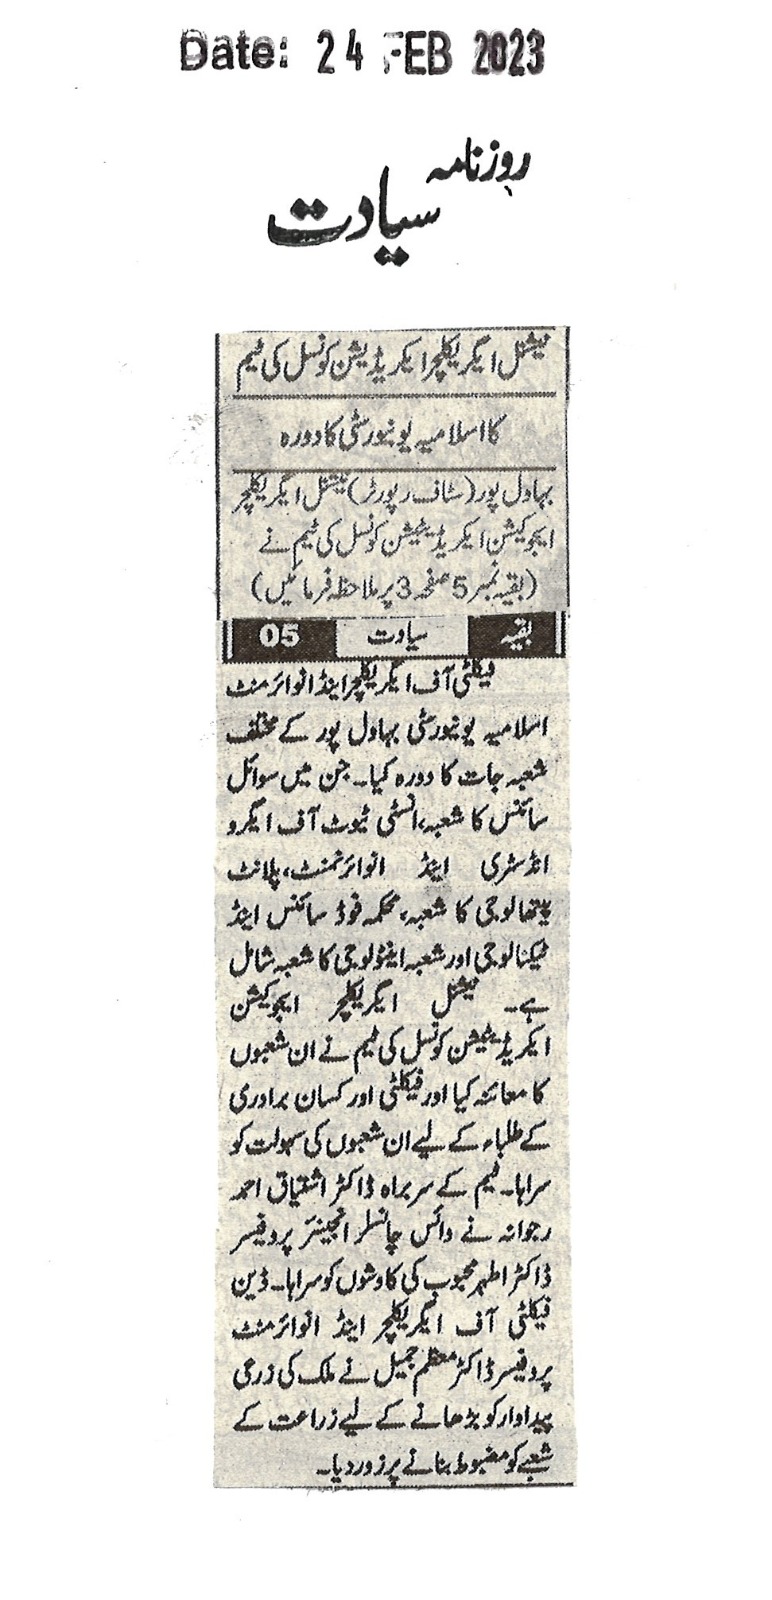 Date: 24 FEB 2023
روزنامہ
سیادت
نیشنل ایگریکلچر ایکریڈیشن کونسل کی ٹیم
کا اسلامیہ یونیورسٹی کا دورہ
بہاول پور (سٹاف رپورٹر) نیشنل ایگریکلچر
ایجوکیشن ایکریڈیٹیشن کونسل کی ٹیم نے
(بقیہ نمبر 5 صفحہ 3 پر ملاحظہ فرمائیں)
بقیہ سیادت 05
فیکلٹی آف ایگریکلچر اینڈ انوائرمنٹ
اسلامیہ یونیورسٹی بہاول پور کے مختلف
شعبہ جات کا دورہ کیا۔ جن میں سوائل
سائنس کا شعبہ، انسٹی ٹیوٹ آف ایگرو
انڈسٹری اینڈ انوائرنمنٹ، پلانٹ
پیتھالوجی کا شعبہ، محکمہ فوڈ سائنس اینڈ
ٹیکنالوجی اور شعبہ اینٹولوجی کا شعبہ شامل
ہے۔ نیشنل ایگریکلچر ایجوکیشن
ایکریڈیٹیشن کونسل کی ٹیم نے ان شعبوں
کا معائنہ کیا اور فیکلٹی اور کسان برادری
کے طلباء کے لیے ان شعبوں کی سہولت کو
سراہا۔ ٹیم کے سربراہ ڈاکٹر اشتیاق احمد
رجوانہ نے وائس چانسلر انجینئر پروفیسر
ڈاکٹر اطہر محبوب کی کاوشوں کو سراہا۔ ڈین
فیکلٹی آف ایگریکلچر اینڈ انوائرمنٹ
پروفیسر ڈاکٹر معظم جمیل نے ملک کی زرعی
پیداوار کو بڑھانے کے لیے زراعت کے
شعبے کو مضبوط بنانے پر زور دیا۔